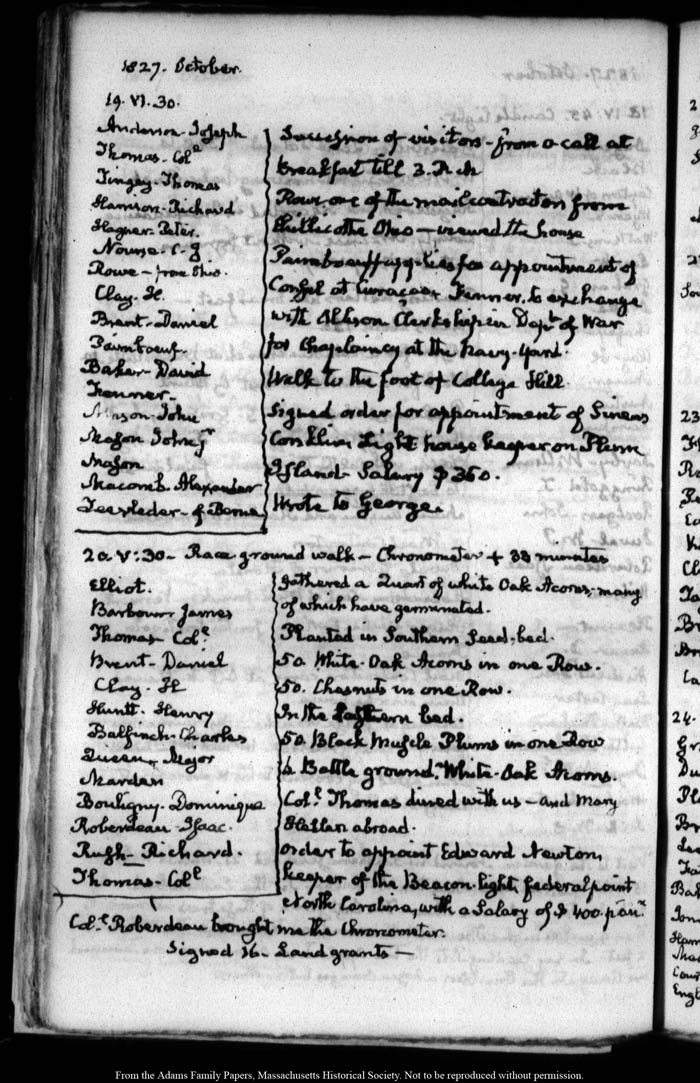 1827. October.
19. VI. 30.
Anderson Joseph
Thomas. Col.e
Tingey. Thomas
Harrison. Richard
Hagner. Peter.
Nourse. C. J
Rowe – from Ohio.
Clay. H.
Brent. Daniel
Paimboeuf.
Baker. David
Fenner.
Mason. John
Mason John Jr
Mason
Macomb. Alexander
of Berne
Succession of visitors – from a call at
breakfast till 3. P.M
Rowe one of the mail contractors from
Chillicothe Ohio – viewed the house
Paimboeuf applies for appointment of
Consul at Curaçao. Fenner, to exchange
with Allison Clerkship in Dept. of War
for Chaplaincy at the Navy-Yard.
Walk to the foot of College Hill.
Signed order for appointment of Sineus
Conklin. Light house keeper on Plum
Island – Salary $ 350.
Wrote to George.
20. V: 30 – Race ground walk – Chronometer + 33 minutes
Elliot.
Barbour. James
Thomas Col.e
Brent – Daniel
Clay. H
Huntt. Henry
Bulfinch. Charles
Major
Marden
Bouligny. Dominique
Roberdeau. Isaac.
Rush – Richard.
Thomas – Col.e
Gathered a Quart of white Oak Acorns; many
of which have germinated.
Planted in Southern Seed-bed.
50. White-Oak Acorns in one Row.
50. Chesnuts in one Row.
In the Eastern bed.
50 Black Muscle Plums in one Row
6 Battle ground White-Oak Acorns.
Col.e Thomas dined with us – and Mary
Hellen abroad.
Order to appoint Edward Newton,
keeper of the Beacon-light, federal point
North Carolina, with a Salary of $ 400. p ann.
Col.e Roberdeau brought me the Chronometer.
Signed 36. Land grants –
From the Adams Family Papers, Massachusetts Historical Society. Not to be reproduced without permission.